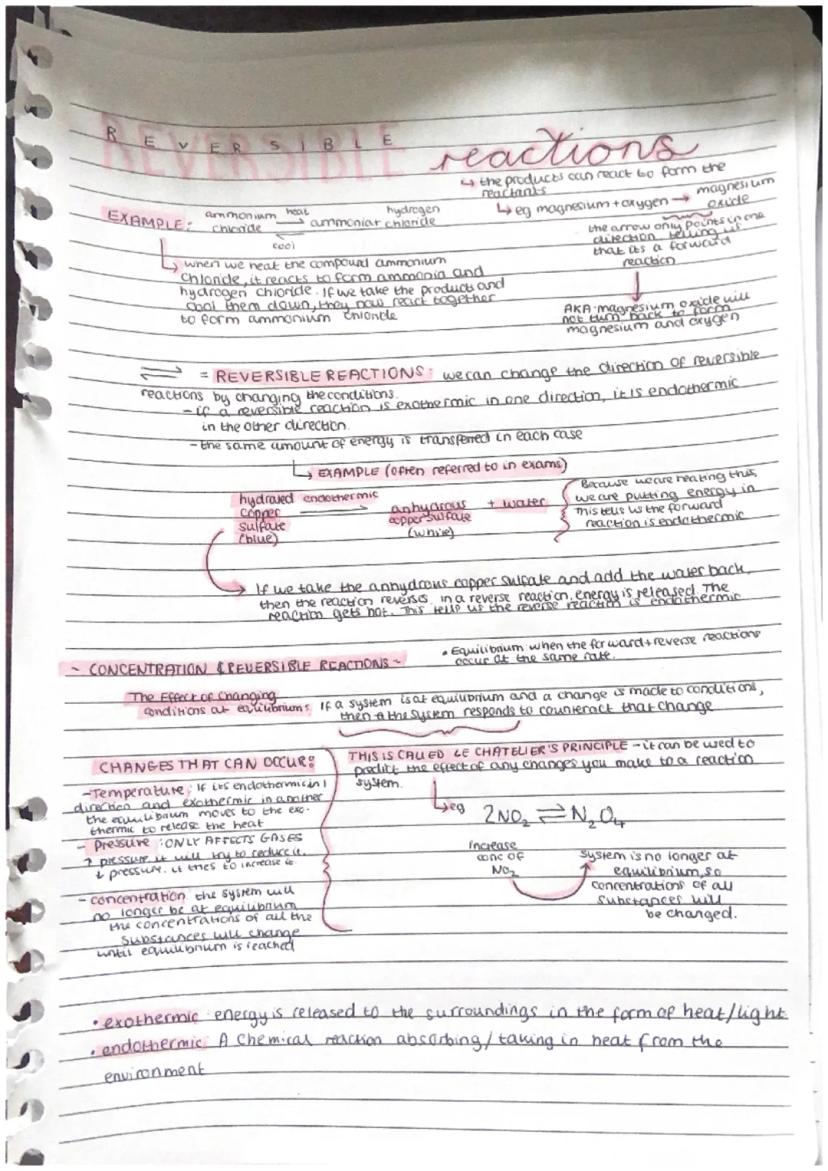 REVERSIBLE reactions
↳ the products can react to form the
reactants
↳ eg magnesium + oxygen → magnesium
oxide
the arrow only points in one
direction telling us
that its a forward
reaction
AKA magnesium oxide will
not turn back to form
magnesium and oxygen
EXAMPLE: ammonium chloride heat → ammonia + hydrogen chloride
cool
↳ when we heat the compound ammonium
chloride, it reacts to form ammonia and
hydrogen chloride. If we take the products and
cool them down, they now react together
to form ammonium chloride
⇌ = REVERSIBLE REACTIONS: we can change the direction of reversible
reactions by changing the conditions.
- if a reversible reaction is exothermic in one direction, it is endothermic
in the other direction.
- the same amount of energy is transferred in each case
↳ EXAMPLE (often referred to in exams)
hydrated copper sulfate (blue) endothermic → anhydrous copper sulfate (white) + water
Because we are heating this,
we are putting energy in
This tells us the forward
reaction is endothermic
If we take the anhydrous copper sulfate and add the water back,
then the reaction reverses. in a reverse reaction, energy is released. The
reaction gets hot. This tells us the reverse reaction is endothermic
~ CONCENTRATION & REVERSIBLE REACTIONS ~
• Equilibrium when the forward + reverse reactions
occur at the same rate.
The Effect of Changing
conditions at equilibriums: If a system is at equilibrium and a change is made to conditions,
then the system responds to counteract that change
CHANGES THAT CAN OCCUR:
- Temperature: If its endothermic in 1
direction and exothermic in another
the equilibrium moves to the exo-
thermic to release the heat
- Pressure: ONLY AFFECTS GASES
↑ pressure it will try to reduce it.
↓ pressure. it tries to increase it
- concentration the system will
no longer be at equilibrium
the concentrations of all the
substances will change
until equilibrium is reached
THIS IS CALLED LE CHATELIER'S PRINCIPLE - it can be used to
predict the effect of any changes you make to a reaction
system.
↳ eg 2NO₂ ⇌ N₂O₄
increase
conc of
NO₂
system is no longer at
equilibrium, so
concentrations of all
substances will
be changed.
• exothermic energy is released to the surroundings in the form of heat/light
• endothermic A Chemical reaction absorbing/taking in heat from the
environment